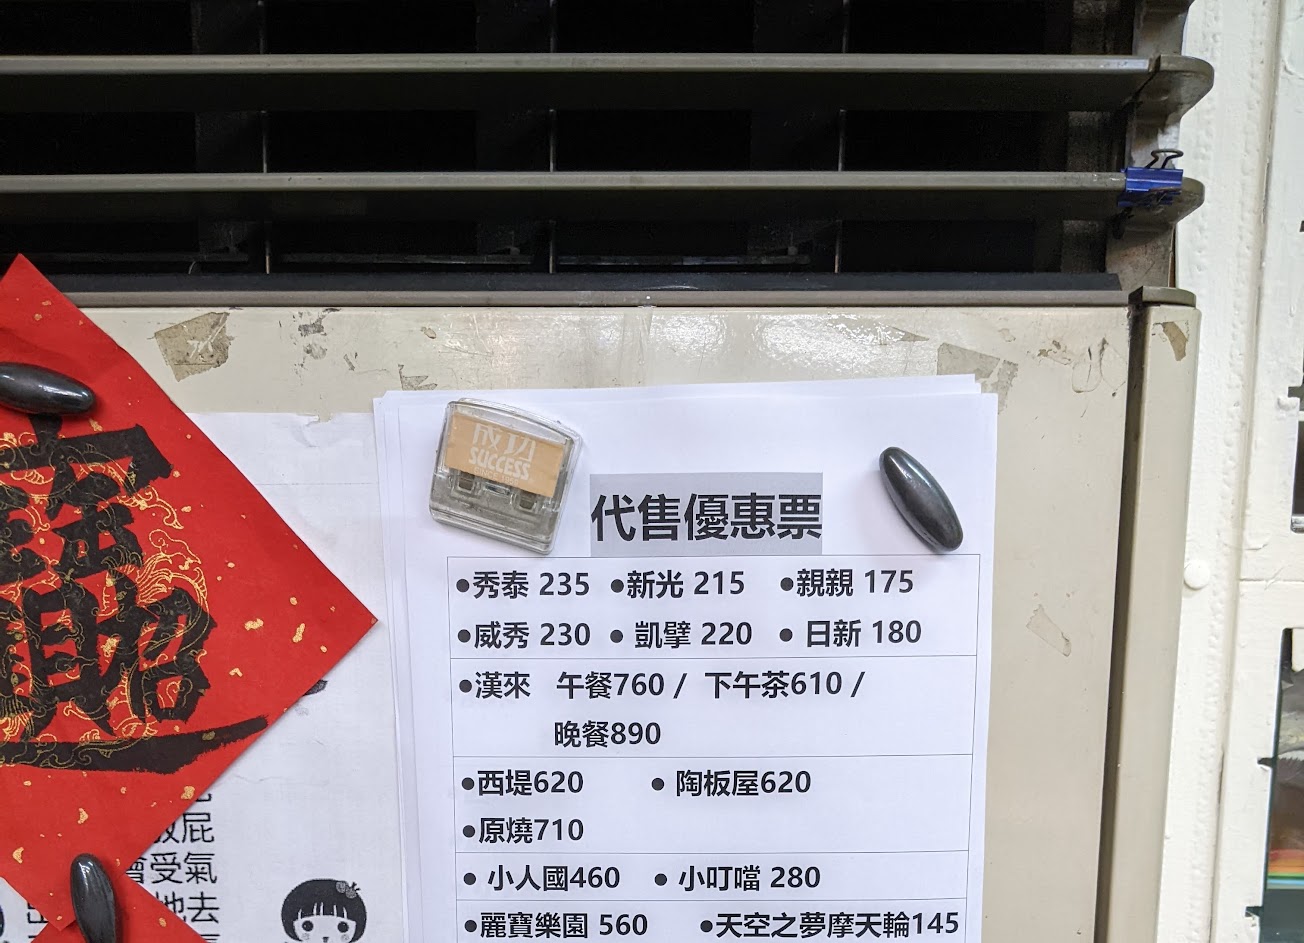 成功
SUCCESS
代售優惠票
●秀泰 235 ●新光 215 ●親親 175
●威秀 230 ● 凱擘 220 ● 日新 180
●漢來 午餐760 / 下午茶610 /
晚餐890
●西堤620 ● 陶板屋620
●原燒710
● 小人國460 ● 小叮噹 280
●麗寶樂園 560 ●天空之夢摩天輪145
屁
會受氣
他去